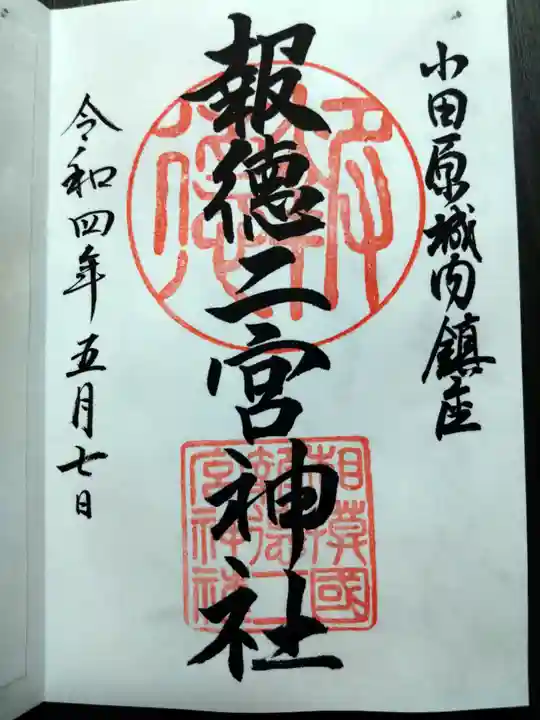 小田原城内鎮座
報徳二宮神社
報徳
相模國
報徳二
宮神社
令和四年五月七日